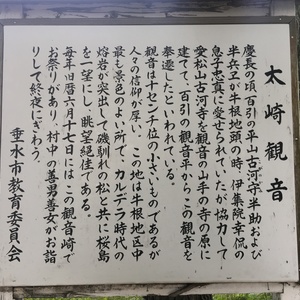 太崎観音
慶長の頃百引の平山古河守半助および
半兵ヱが牛根地頭の時、伊集院幸侃の
息子忠真に受せられていたが協力して
愛松山古河寺を観音の山手の寺の原に
建てて、百引の観音平からこの観音を
奉遷したといわれている。
観音は十センチ位の小さいものであるが
人々の信仰が厚い。この地は牛根地区中
最も景色のよい所で、カルデラ時代の
熔岩が突出して磯馴の松と共に桜島
を一望にし、眺望絶佳である。
毎年旧暦六月十七日にはこの観音崎で
お祭りがあり、村中の善男善女がお詣
りして終夜にぎわう。
垂水市教育委員会